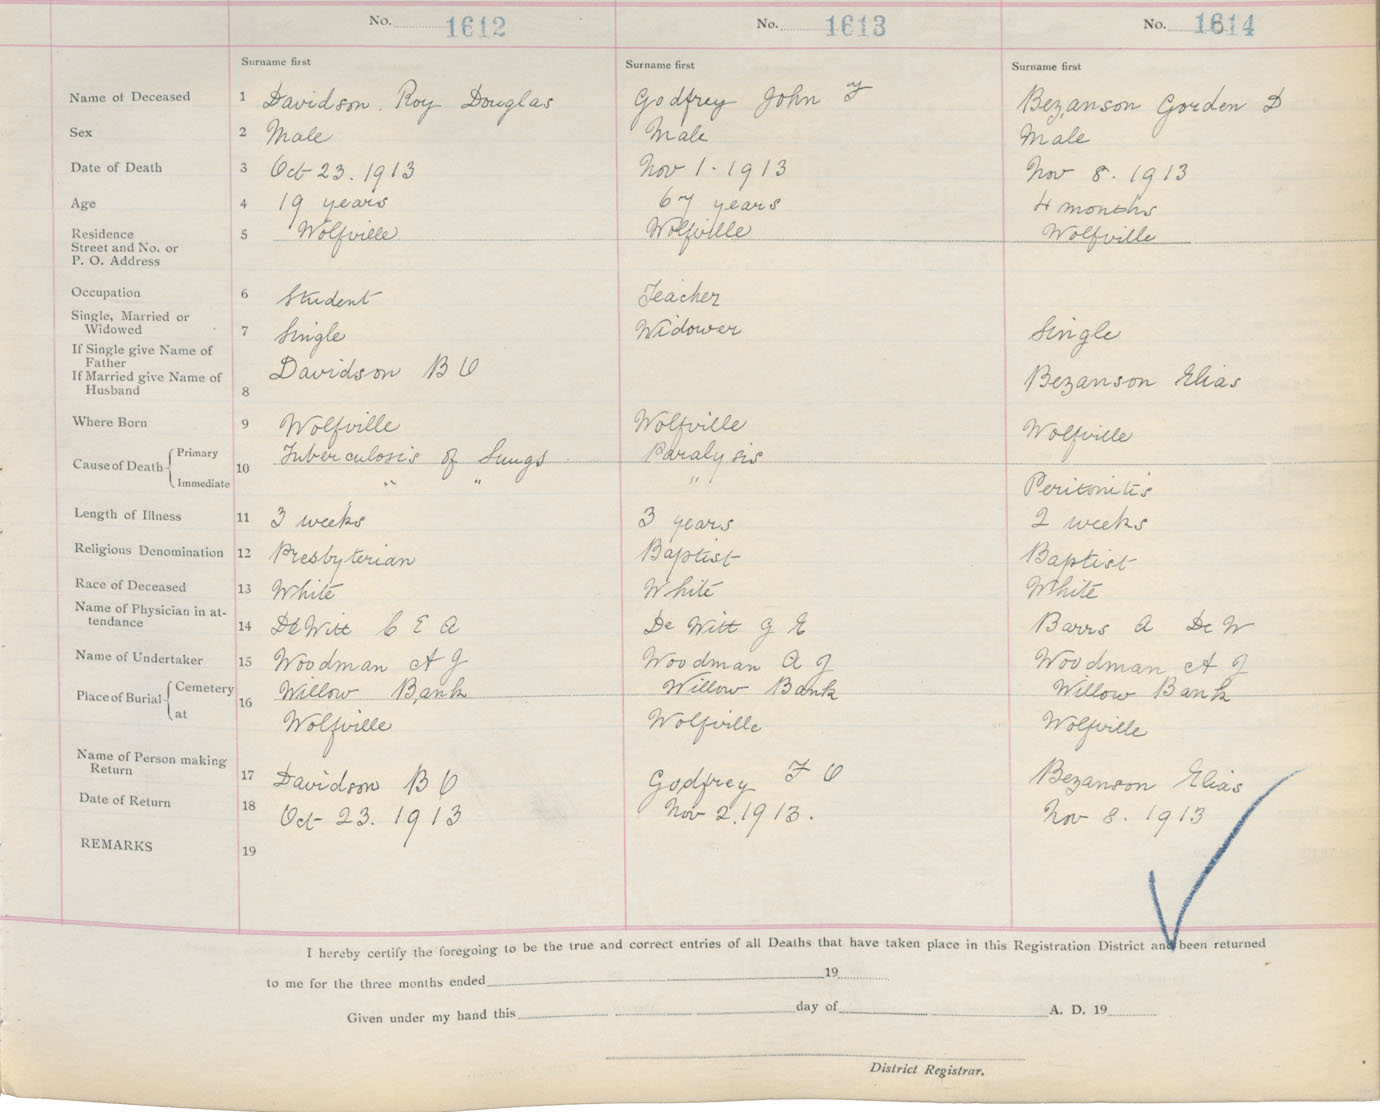 No. 1612 No. 1613 No. 1614
Surname first Surname first Surname first
Name of Deceased 1 Davidson. Roy Douglas Godfrey John F Bezanson Gorden D
Sex 2 Male Male Male
Date of Death 3 Oct 23. 1913 Nov 1. 1913 Nov 8. 1913
Age 4 19 years 67 years 4 months
Residence 5 Wolfville Wolfville Wolfville
Street and No. or
P. O. Address
Occupation 6 Student Teacher
Single, Married or
Widowed 7 Single Widower Single
If Single give Name of
Father Davidson B O
If Married give Name of Bezanson Elias
Husband 8
Where Born 9 Wolfville Wolfville Wolfville
Cause of Death Primary 10 Tuberculosis of Lungs Paralysis
Immediate " " " Peritonitis
Length of Illness 11 3 weeks 3 years 2 weeks
Religious Denomination 12 Presbyterian Baptist Baptist
Race of Deceased 13 White White White
Name of Physician in at-
tendance 14 DeWitt C E A De Witt G E Barrs A De W
Name of Undertaker 15 Woodman A J Woodman A J Woodman A J
Place of Burial Cemetery 16 Willow Bank Willow Bank Willow Bank
at Wolfville Wolfville Wolfville
Name of Person making
Return 17 Davidson B O Godfrey F O Bezanson Elias
Date of Return 18 Oct 23. 1913 Nov 2. 1913. Nov 8. 1913
REMARKS 19
I hereby certify the foregoing to be the true and correct entries of all Deaths that have taken place in this Registration District and been returned
to me for the three months ended 19
Given under my hand this day of A. D. 19
District Registrar.